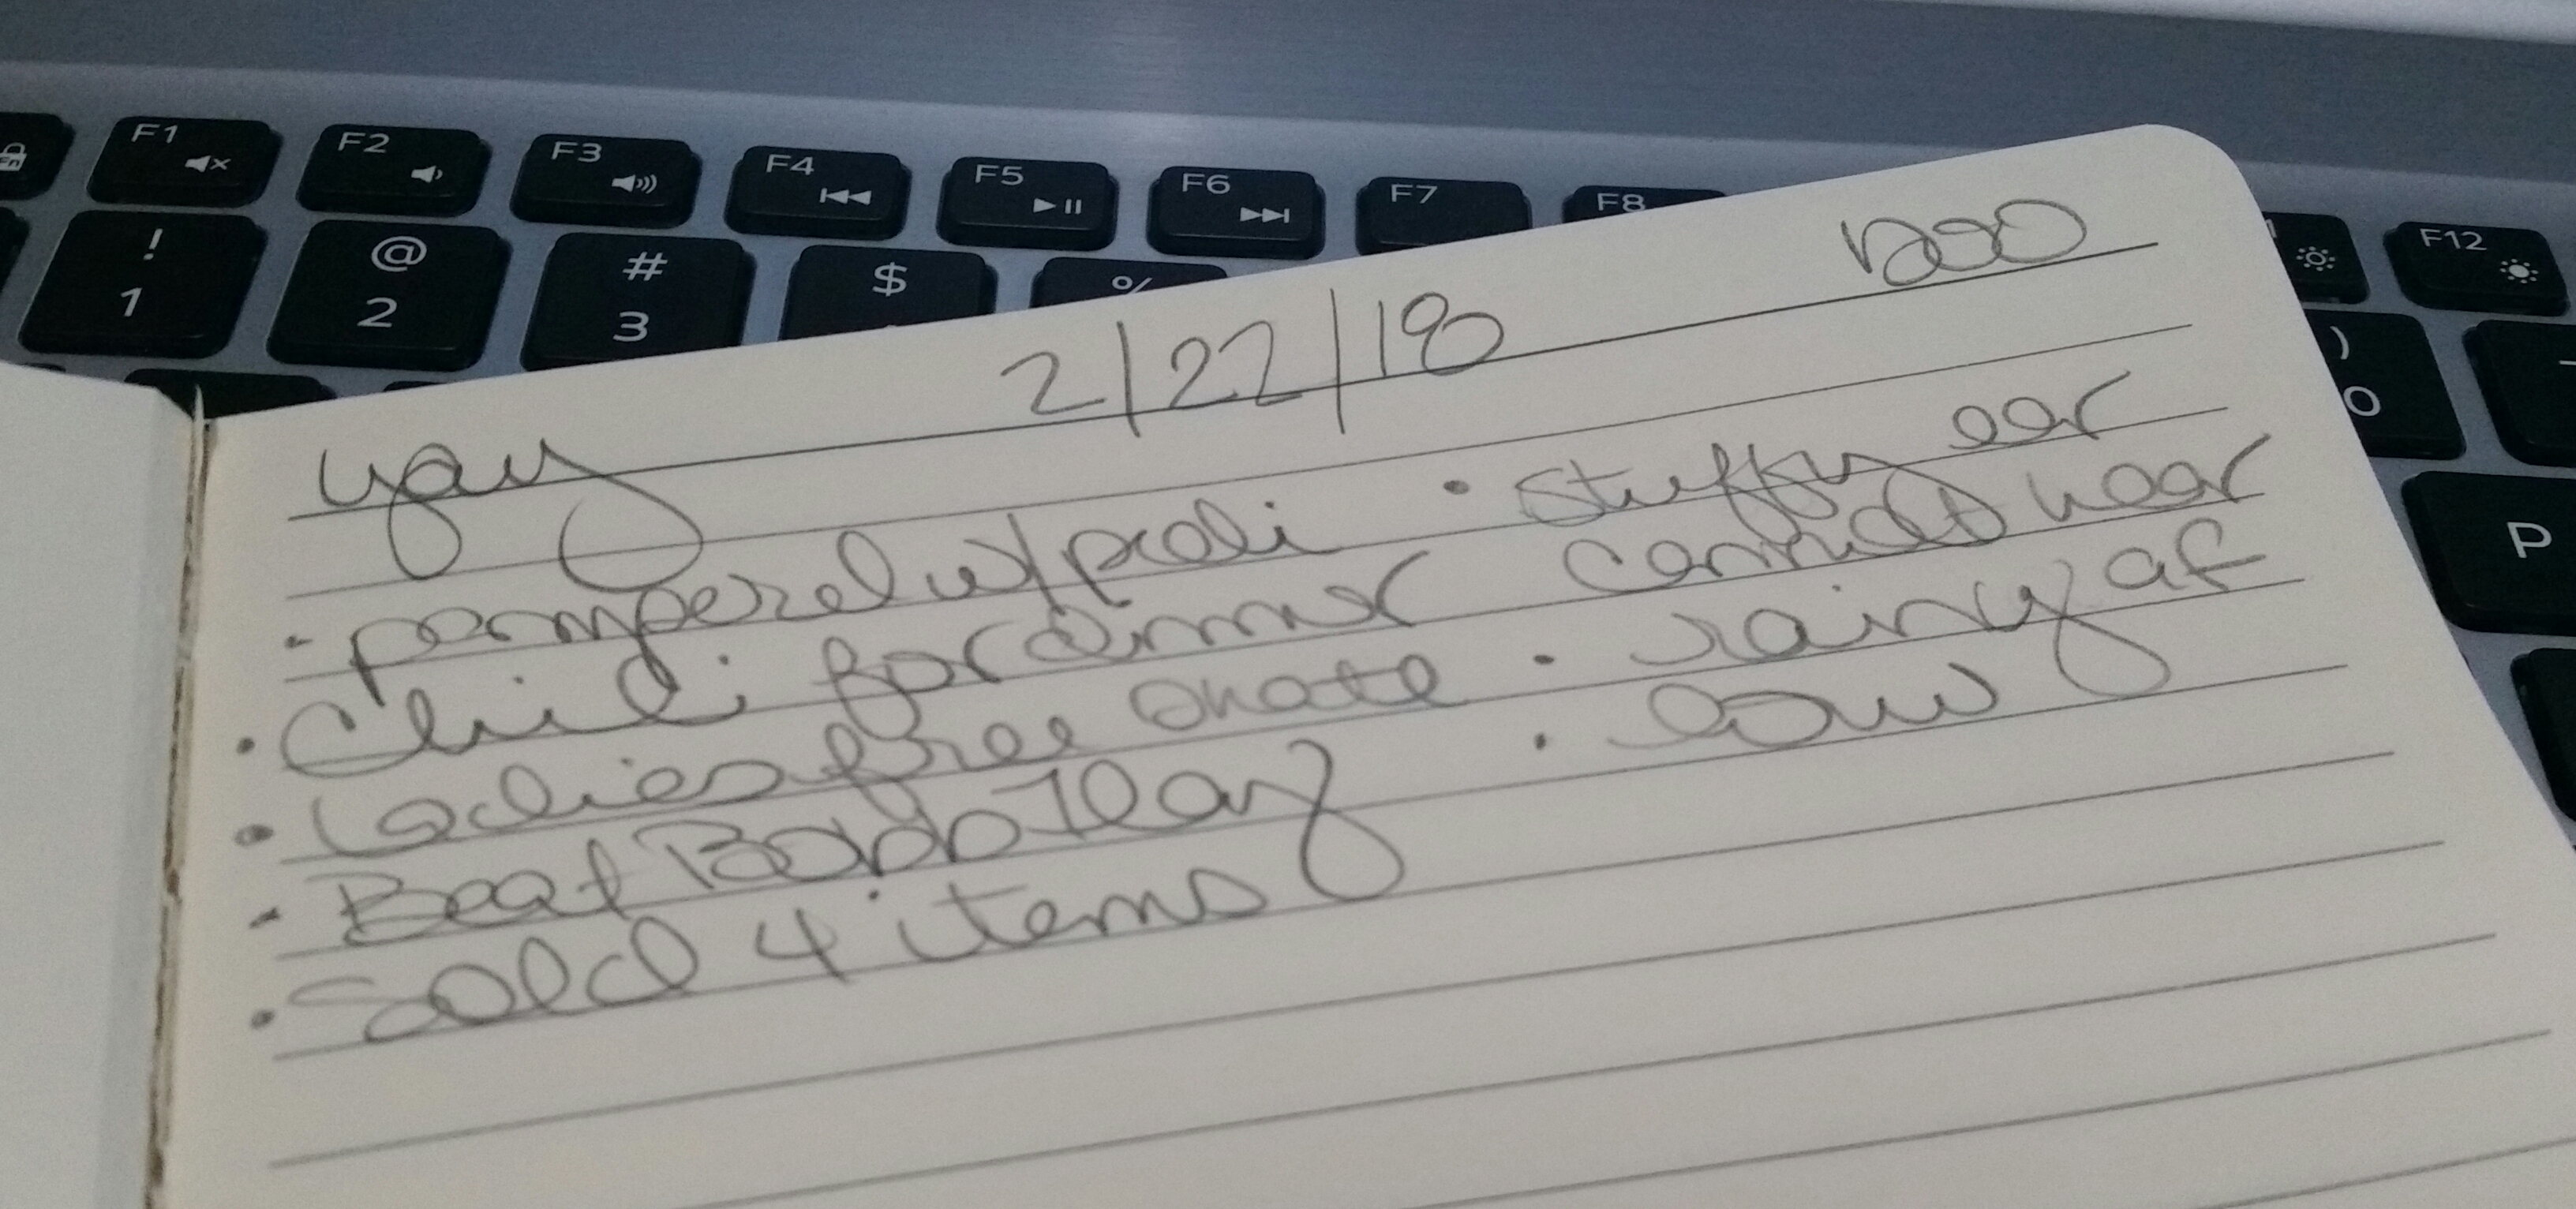 F1
F2
F3
F4
F5
F6
F7
F8
F12
!
1
@
2
#
3
$
%
)
0
P
yay 2/22/18 boo
· pampered w/
· Chili for dinner
· Ladies free skate
· Beat Bobby Flay
· Sold 4 items
· stuffy ear
cannot hear
· rainy af
· low